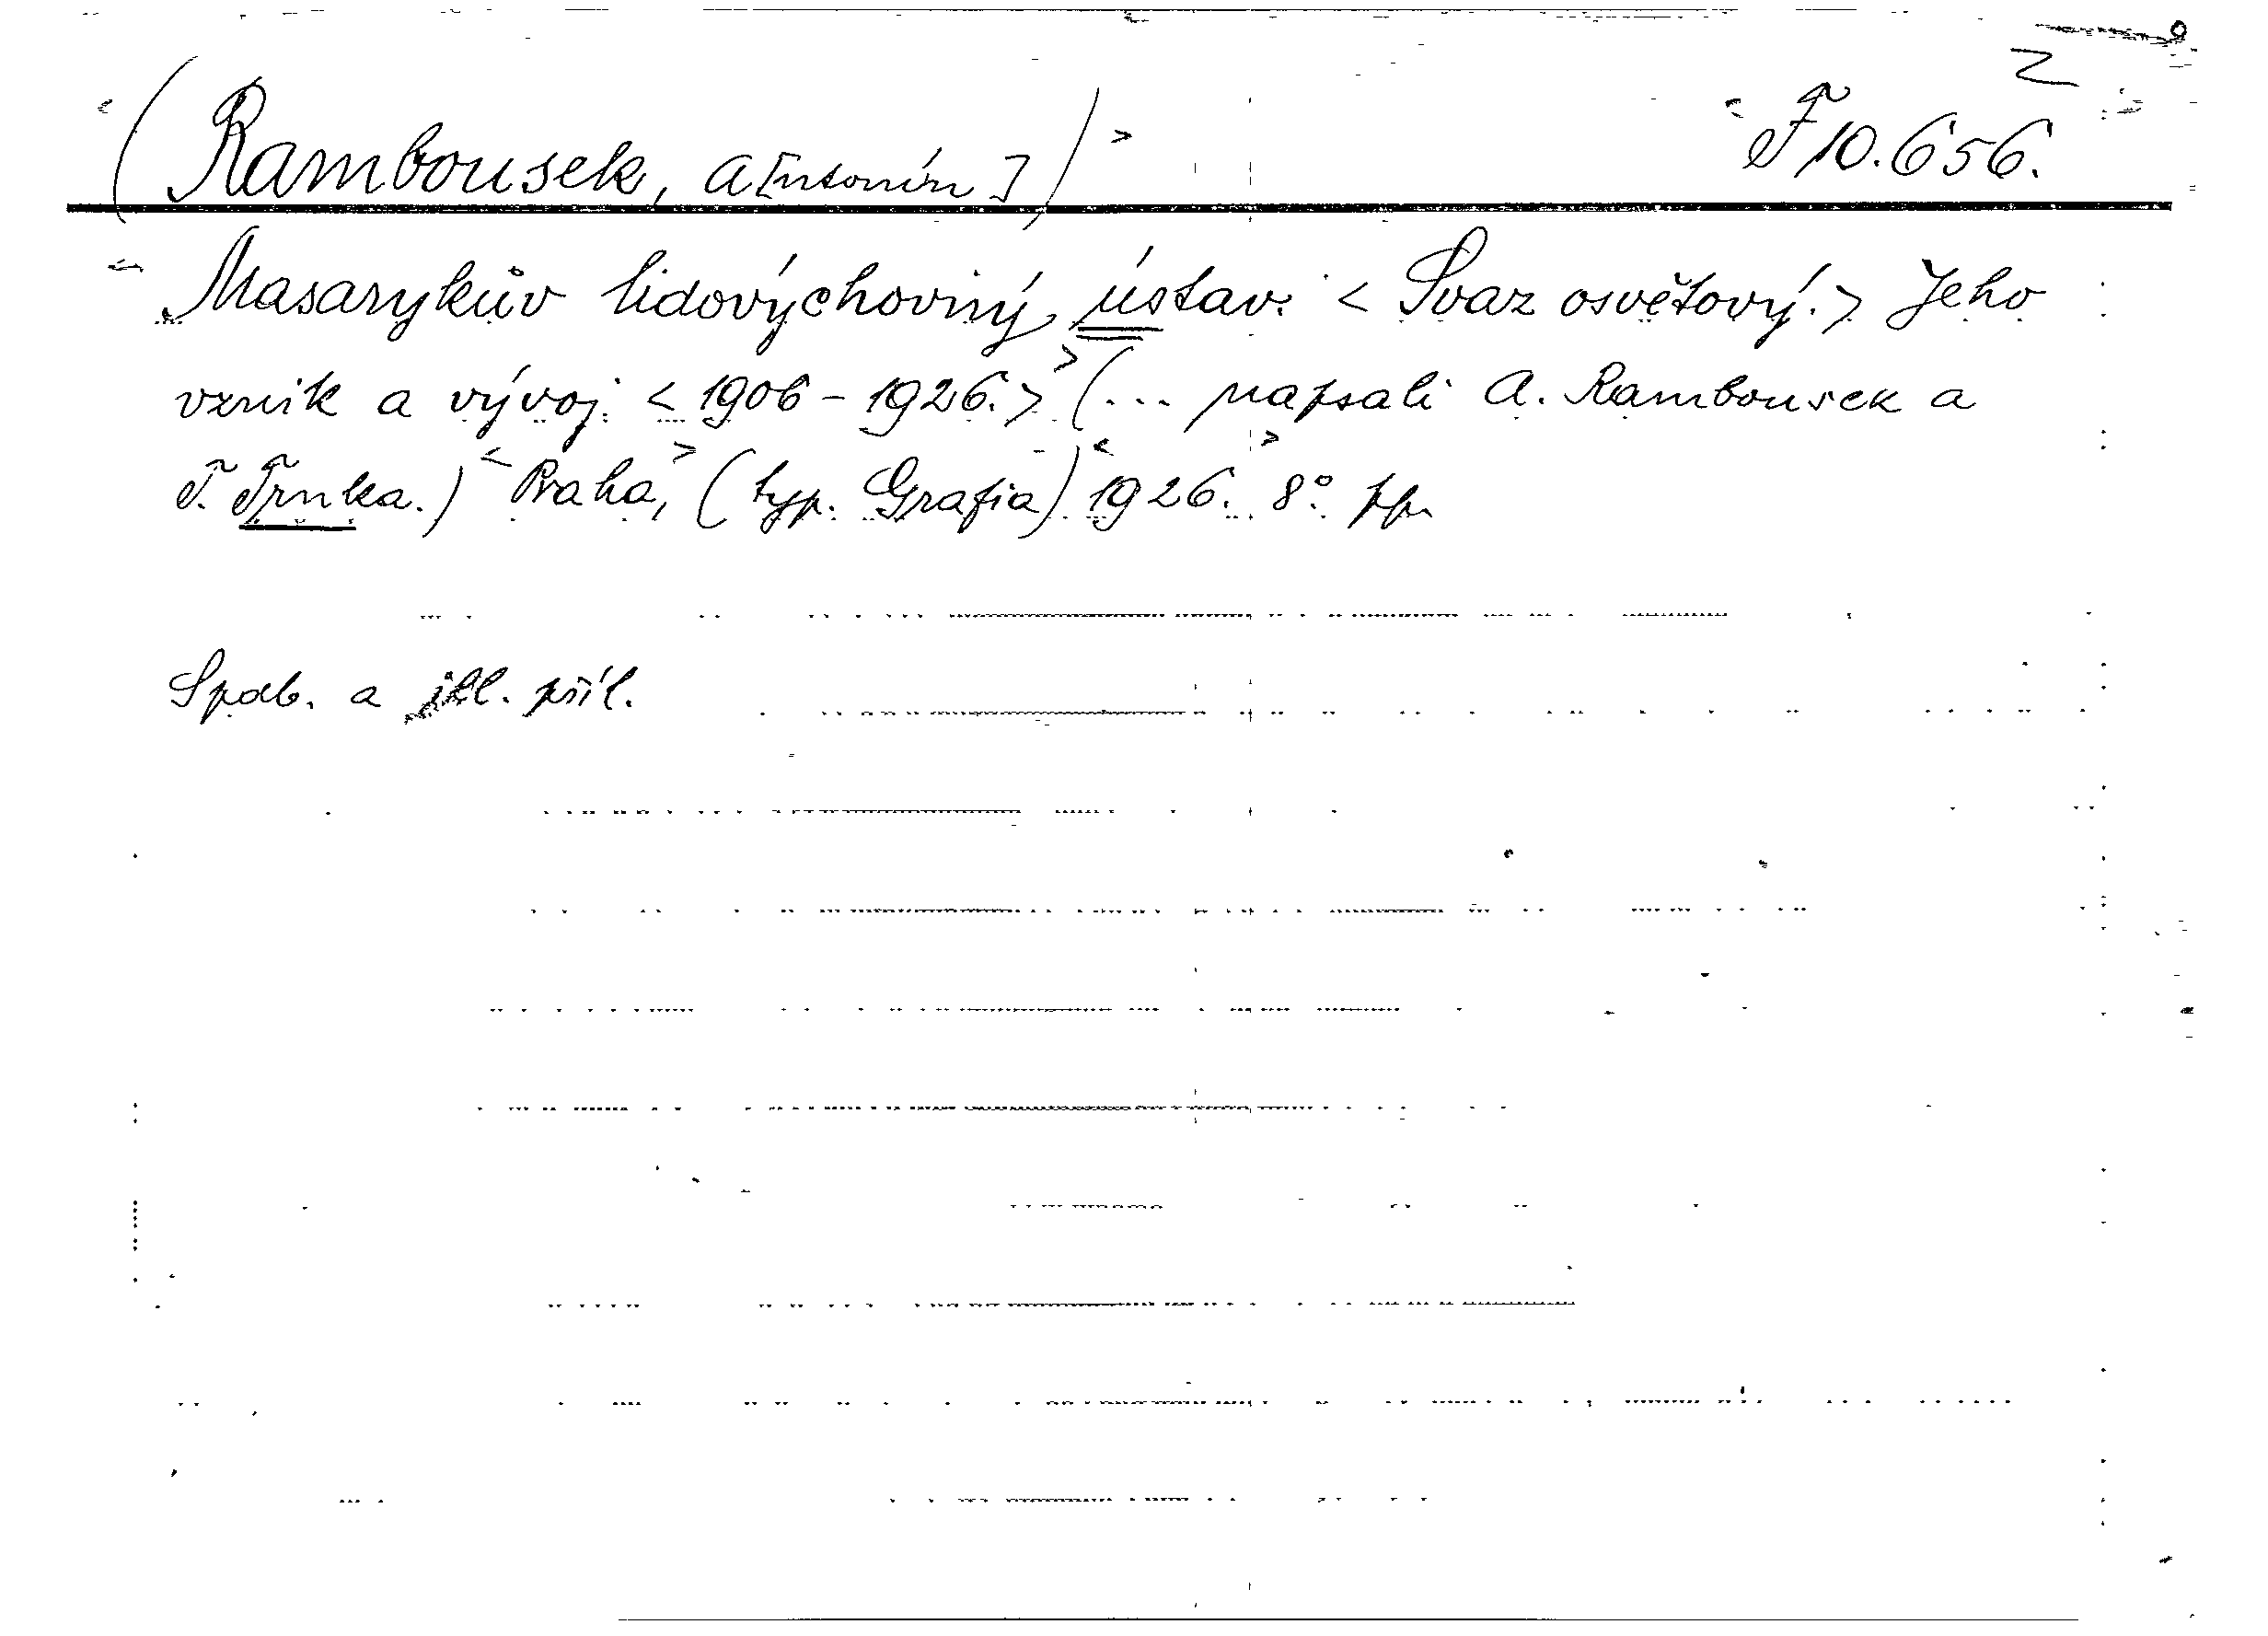 Z
(Rambousek, A[ntonín]) F 10.656.
Masarykův lidovýchovný ústav. < Svaz osvětový. > Jeho
vznik a vývoj. < 1906 - 1926. > (... napsali A. Rambousek a
T. Trnka.) Praha, (typ. Grafia) 1926. 8°.
a příl.